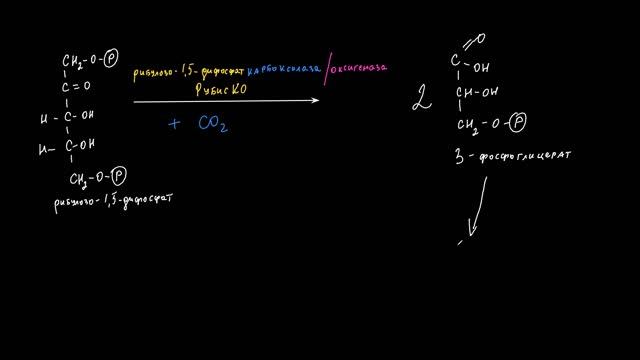 CH₂-O-Ⓟ
C=O
H-C-OH
H-C-OH
CH₂-O-Ⓟ
рибулозо-1,5-дифосфат
рибулозо-1,5-дифосфат карбоксилаза/оксигеназа
РубисКО
+ CO₂
2
O
C-OH
CH-OH
CH₂-O-Ⓟ
3-фосфоглицерат